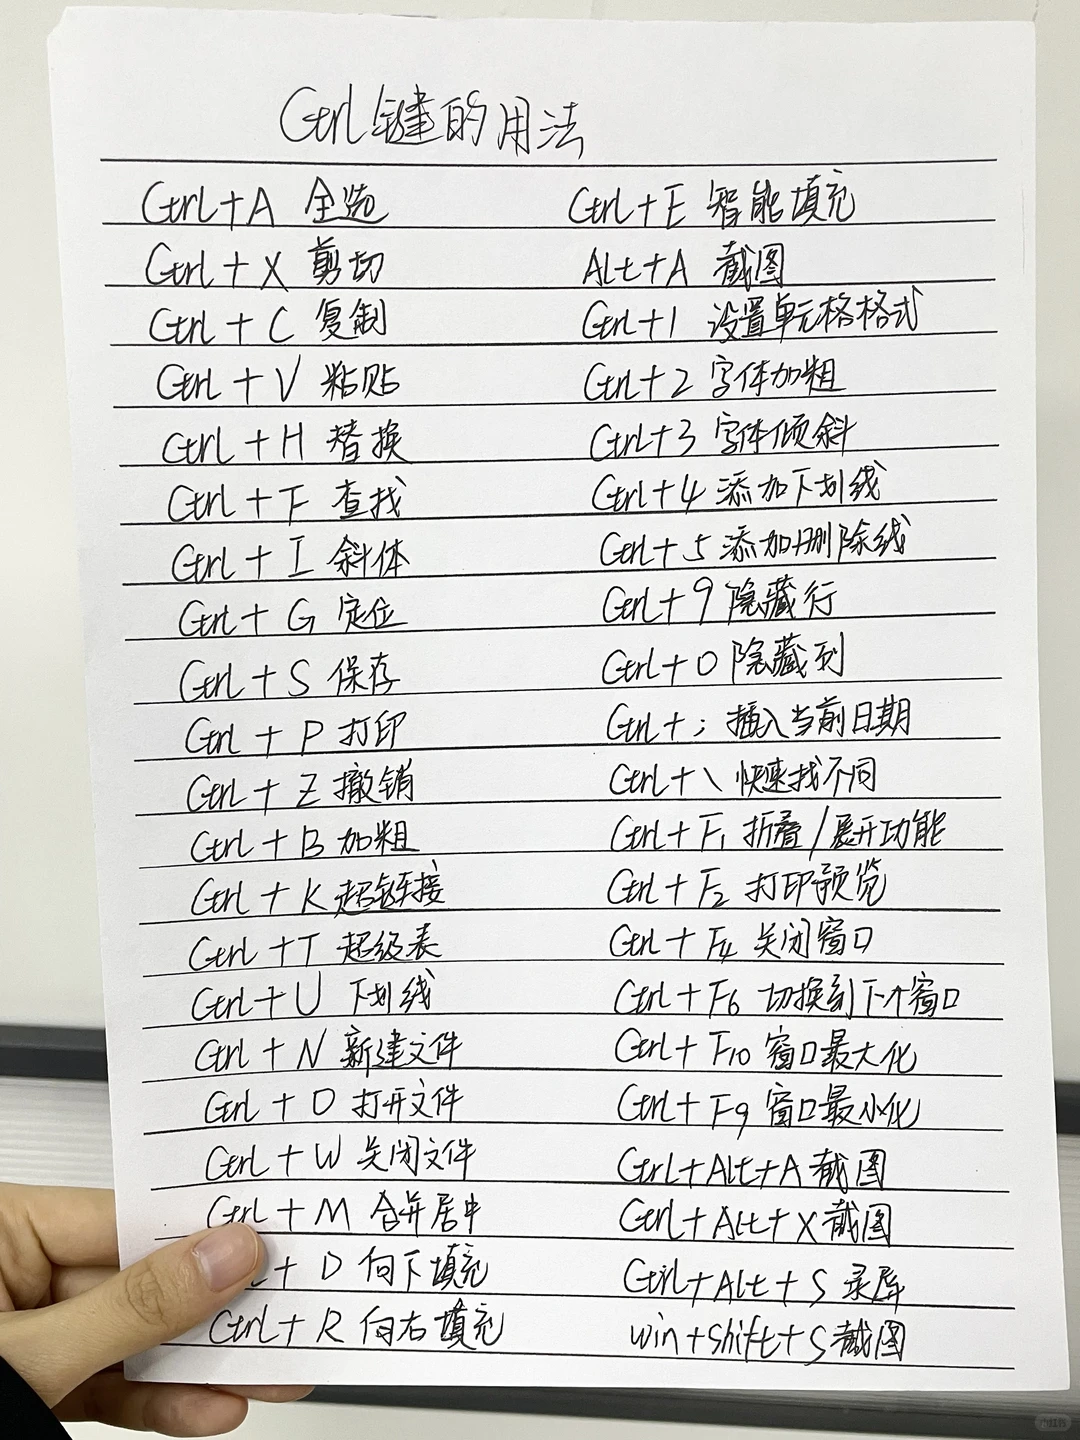 Ctrl键的用法
Ctrl+A 全选
Ctrl+X 剪切
Ctrl+C 复制
Ctrl+V 粘贴
Ctrl+H 替换
Ctrl+F 查找
Ctrl+I 斜体
Ctrl+G 定位
Ctrl+S 保存
Ctrl+P 打印
Ctrl+Z 撤销
Ctrl+B 加粗
Ctrl+K 超链接
Ctrl+T 超级表
Ctrl+U 下划线
Ctrl+N 新建文件
Ctrl+O 打开文件
Ctrl+W 关闭文件
Ctrl+M 合并居中
l+D 向下填充
Ctrl+R 向右填充
Ctrl+E 智能填充
Alt+A 截图
Ctrl+1 设置单元格格式
Ctrl+2 字体加粗
Ctrl+3 字体倾斜
Ctrl+4 添加下划线
Ctrl+5 添加删除线
Ctrl+9 隐藏行
Ctrl+0 隐藏列
Ctrl+; 插入当前日期
Ctrl+\ 快速找不同
Ctrl+F1 折叠/展开功能
Ctrl+F2 打印预览
Ctrl+F4 关闭窗口
Ctrl+F6 切换到下个窗口
Ctrl+F10 窗口最大化
Ctrl+F9 窗口最小化
Ctrl+Alt+A 截图
Ctrl+Alt+X 截图
Ctrl+Alt+S 录屏
win+shift+S 截图